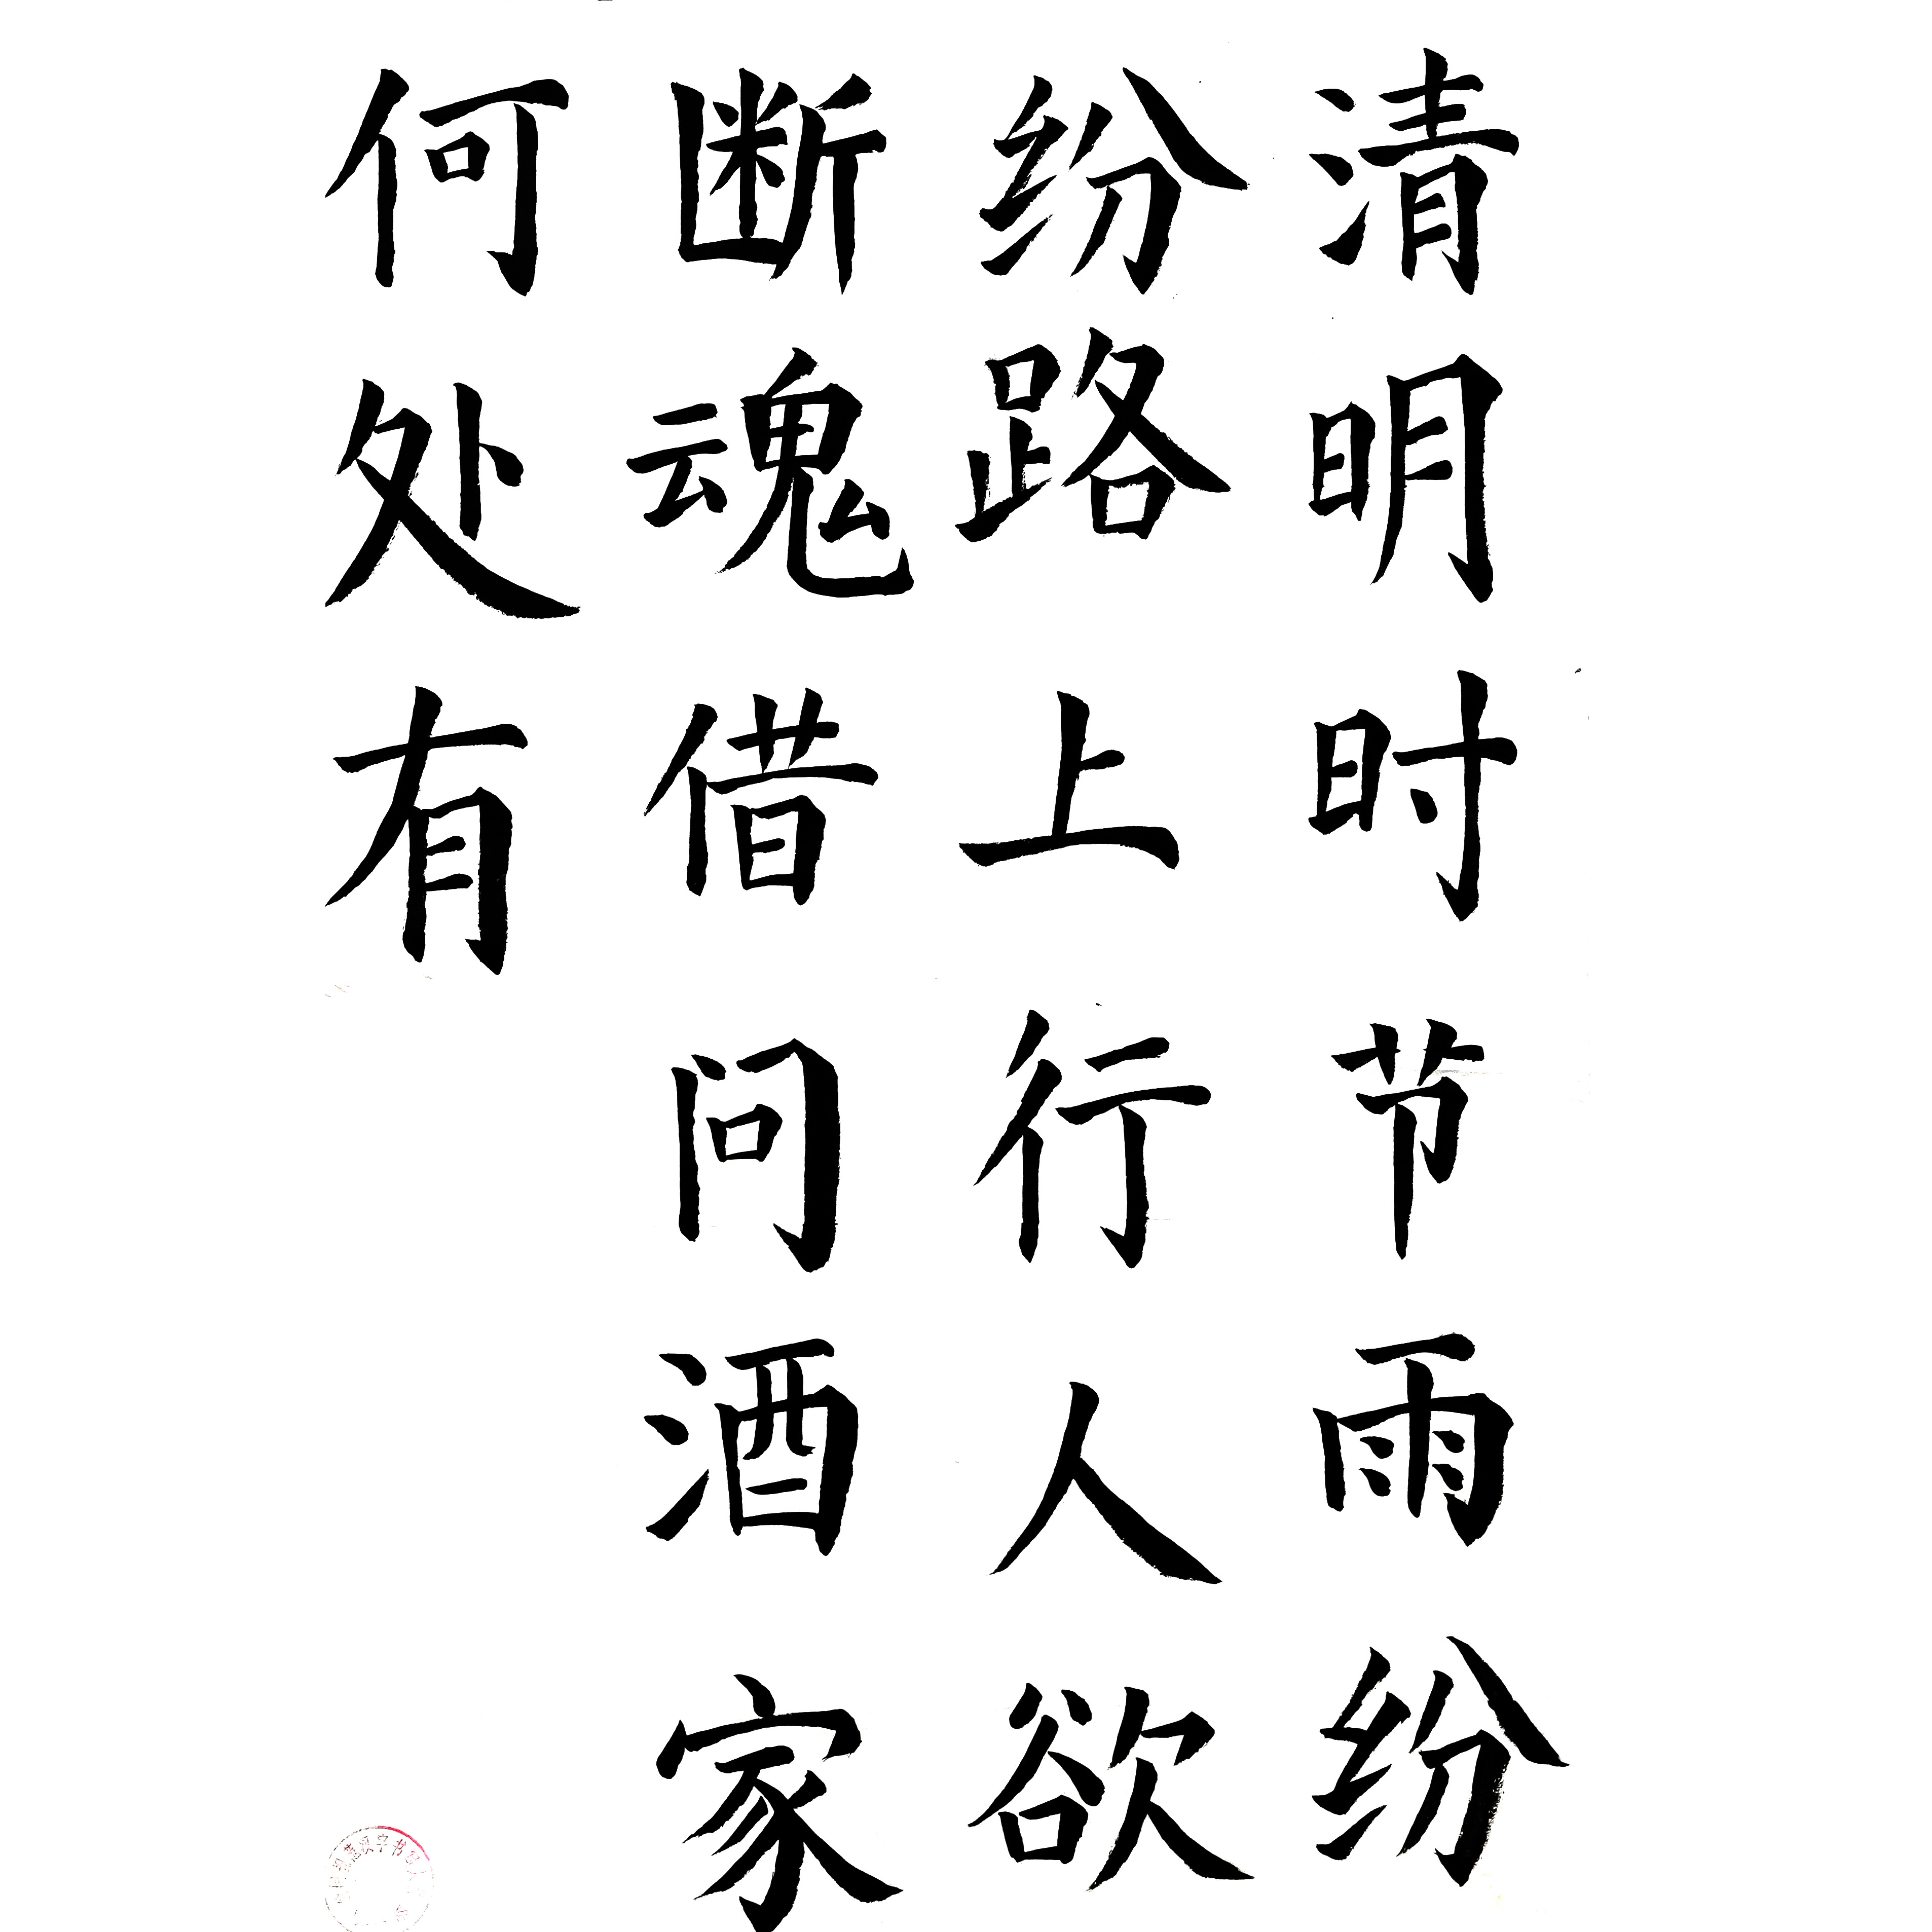 清明时节雨纷
纷路上行人欲
断魂借问酒家
何处有